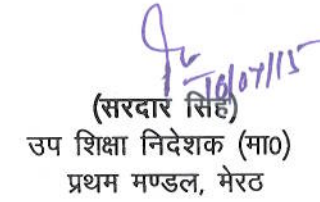 16/07/15
(सरदार सिंह)
उप शिक्षा निदेशक (मा0)
प्रथम मण्डल, मेरठ